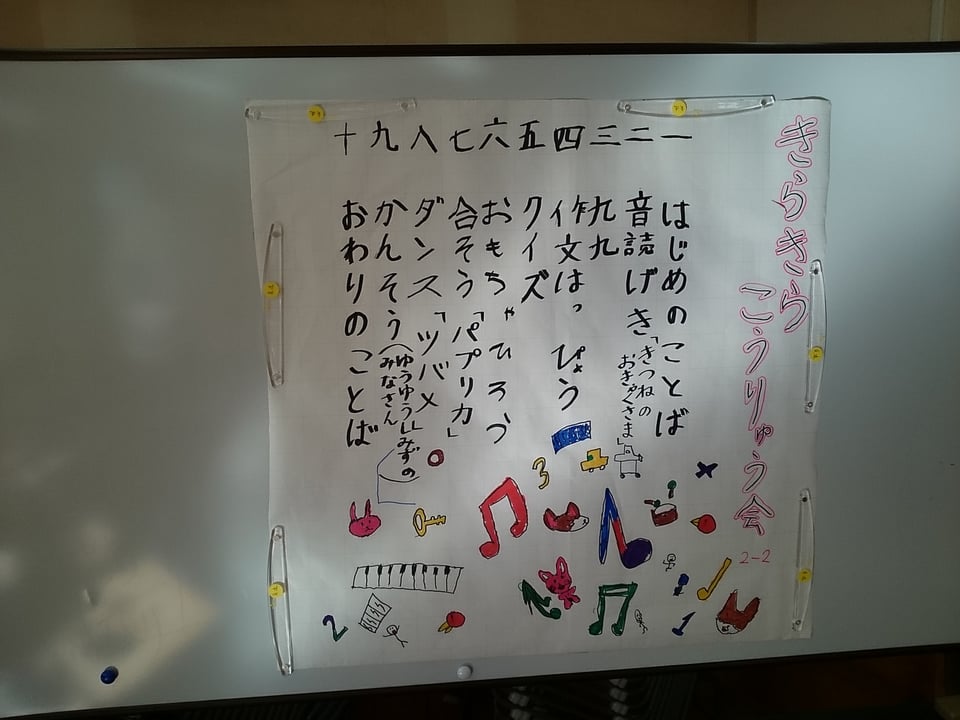 きらきら
こうりゅう会
2-2
一 はじめのことば
二 音読げき「きつねの
おきゃくさま」
三 九九
四 作文はっぴょう
五 クイズ
六 おもちゃひろう
七 合そう「パプリカ」
八 ダンス「ツバメ」
九 かんそう(ゆうゆうしみずの
みなさん)
十 おわりのことば
3
2
1